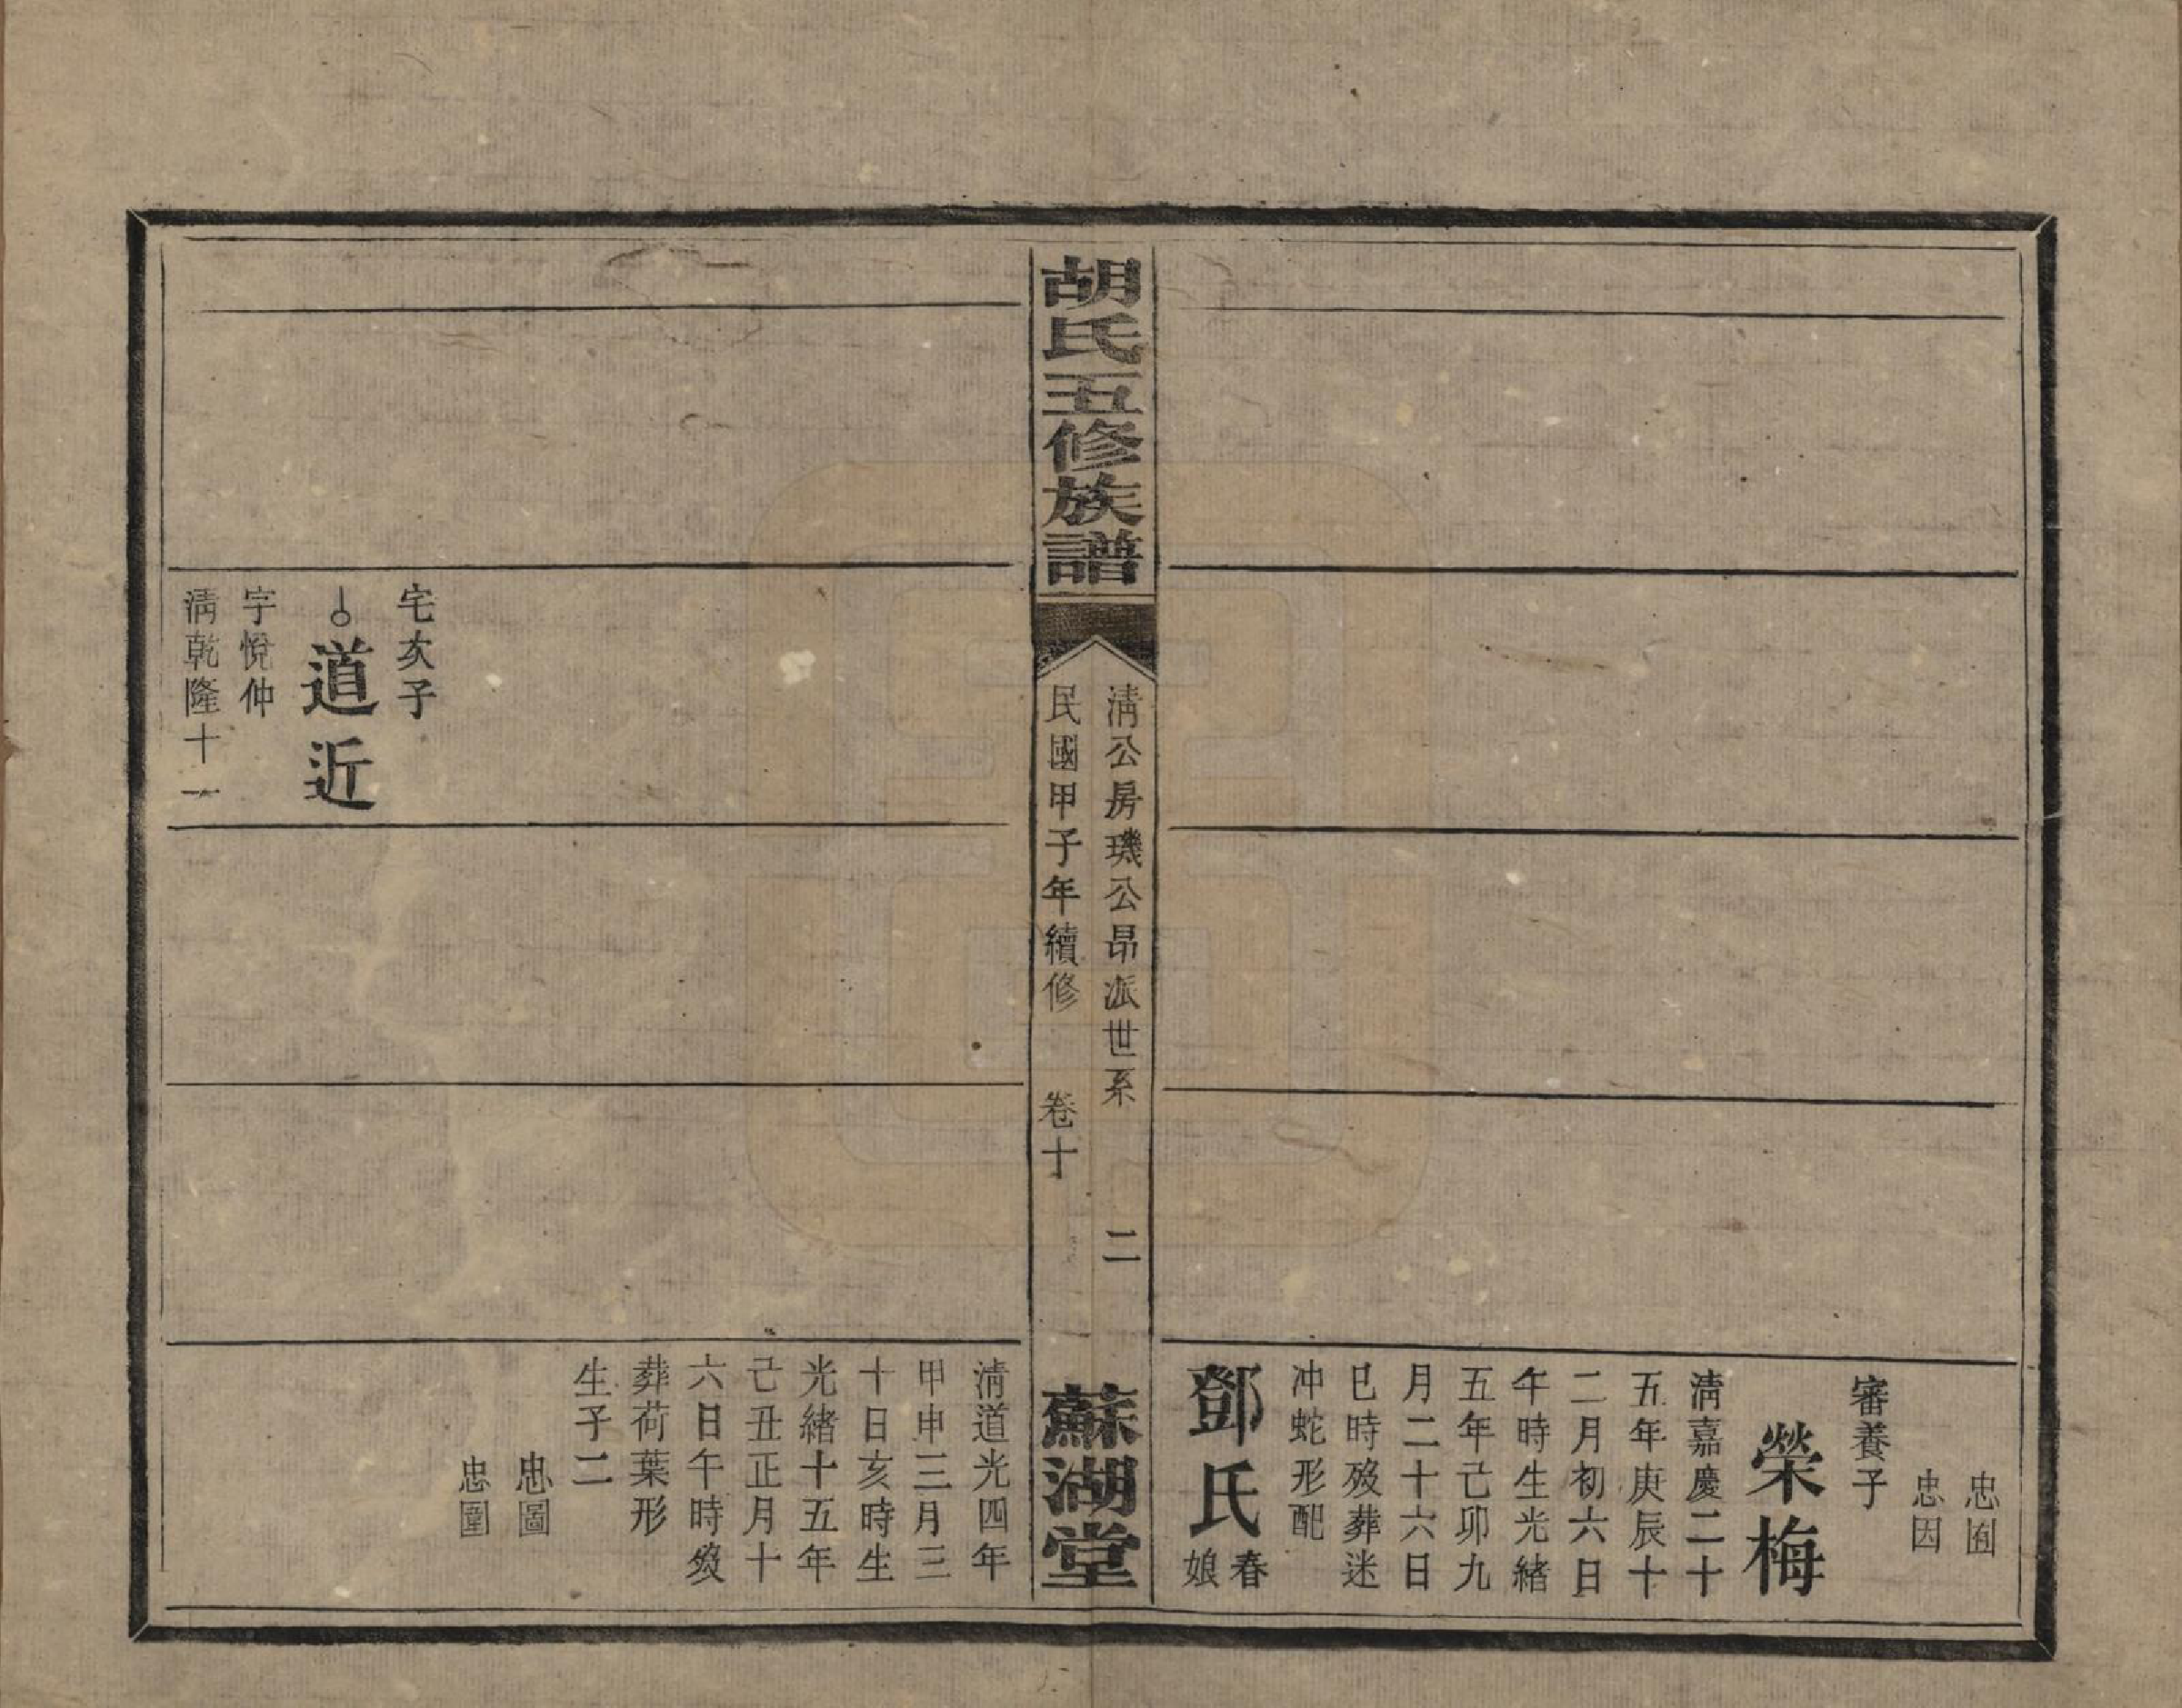 忠囿
忠因
審養子
榮梅
淸嘉慶二十
五年庚辰十
二月初六日
午時生光緒
五年己卯九
月二十六日
巳時歿葬迷
冲蛇形配
鄧氏春娘
胡氏五修族譜
淸公房璣公昂派世系
二
民國甲子年續修
卷十
蘇湖堂
淸道光四年
甲申三月三
十日亥時生
光緒十五年
己丑正月十
六日午時歿
葬荷葉形
生子二
忠圖
忠圍
宅亥子
道近
字悅仲
淸乾隆十一